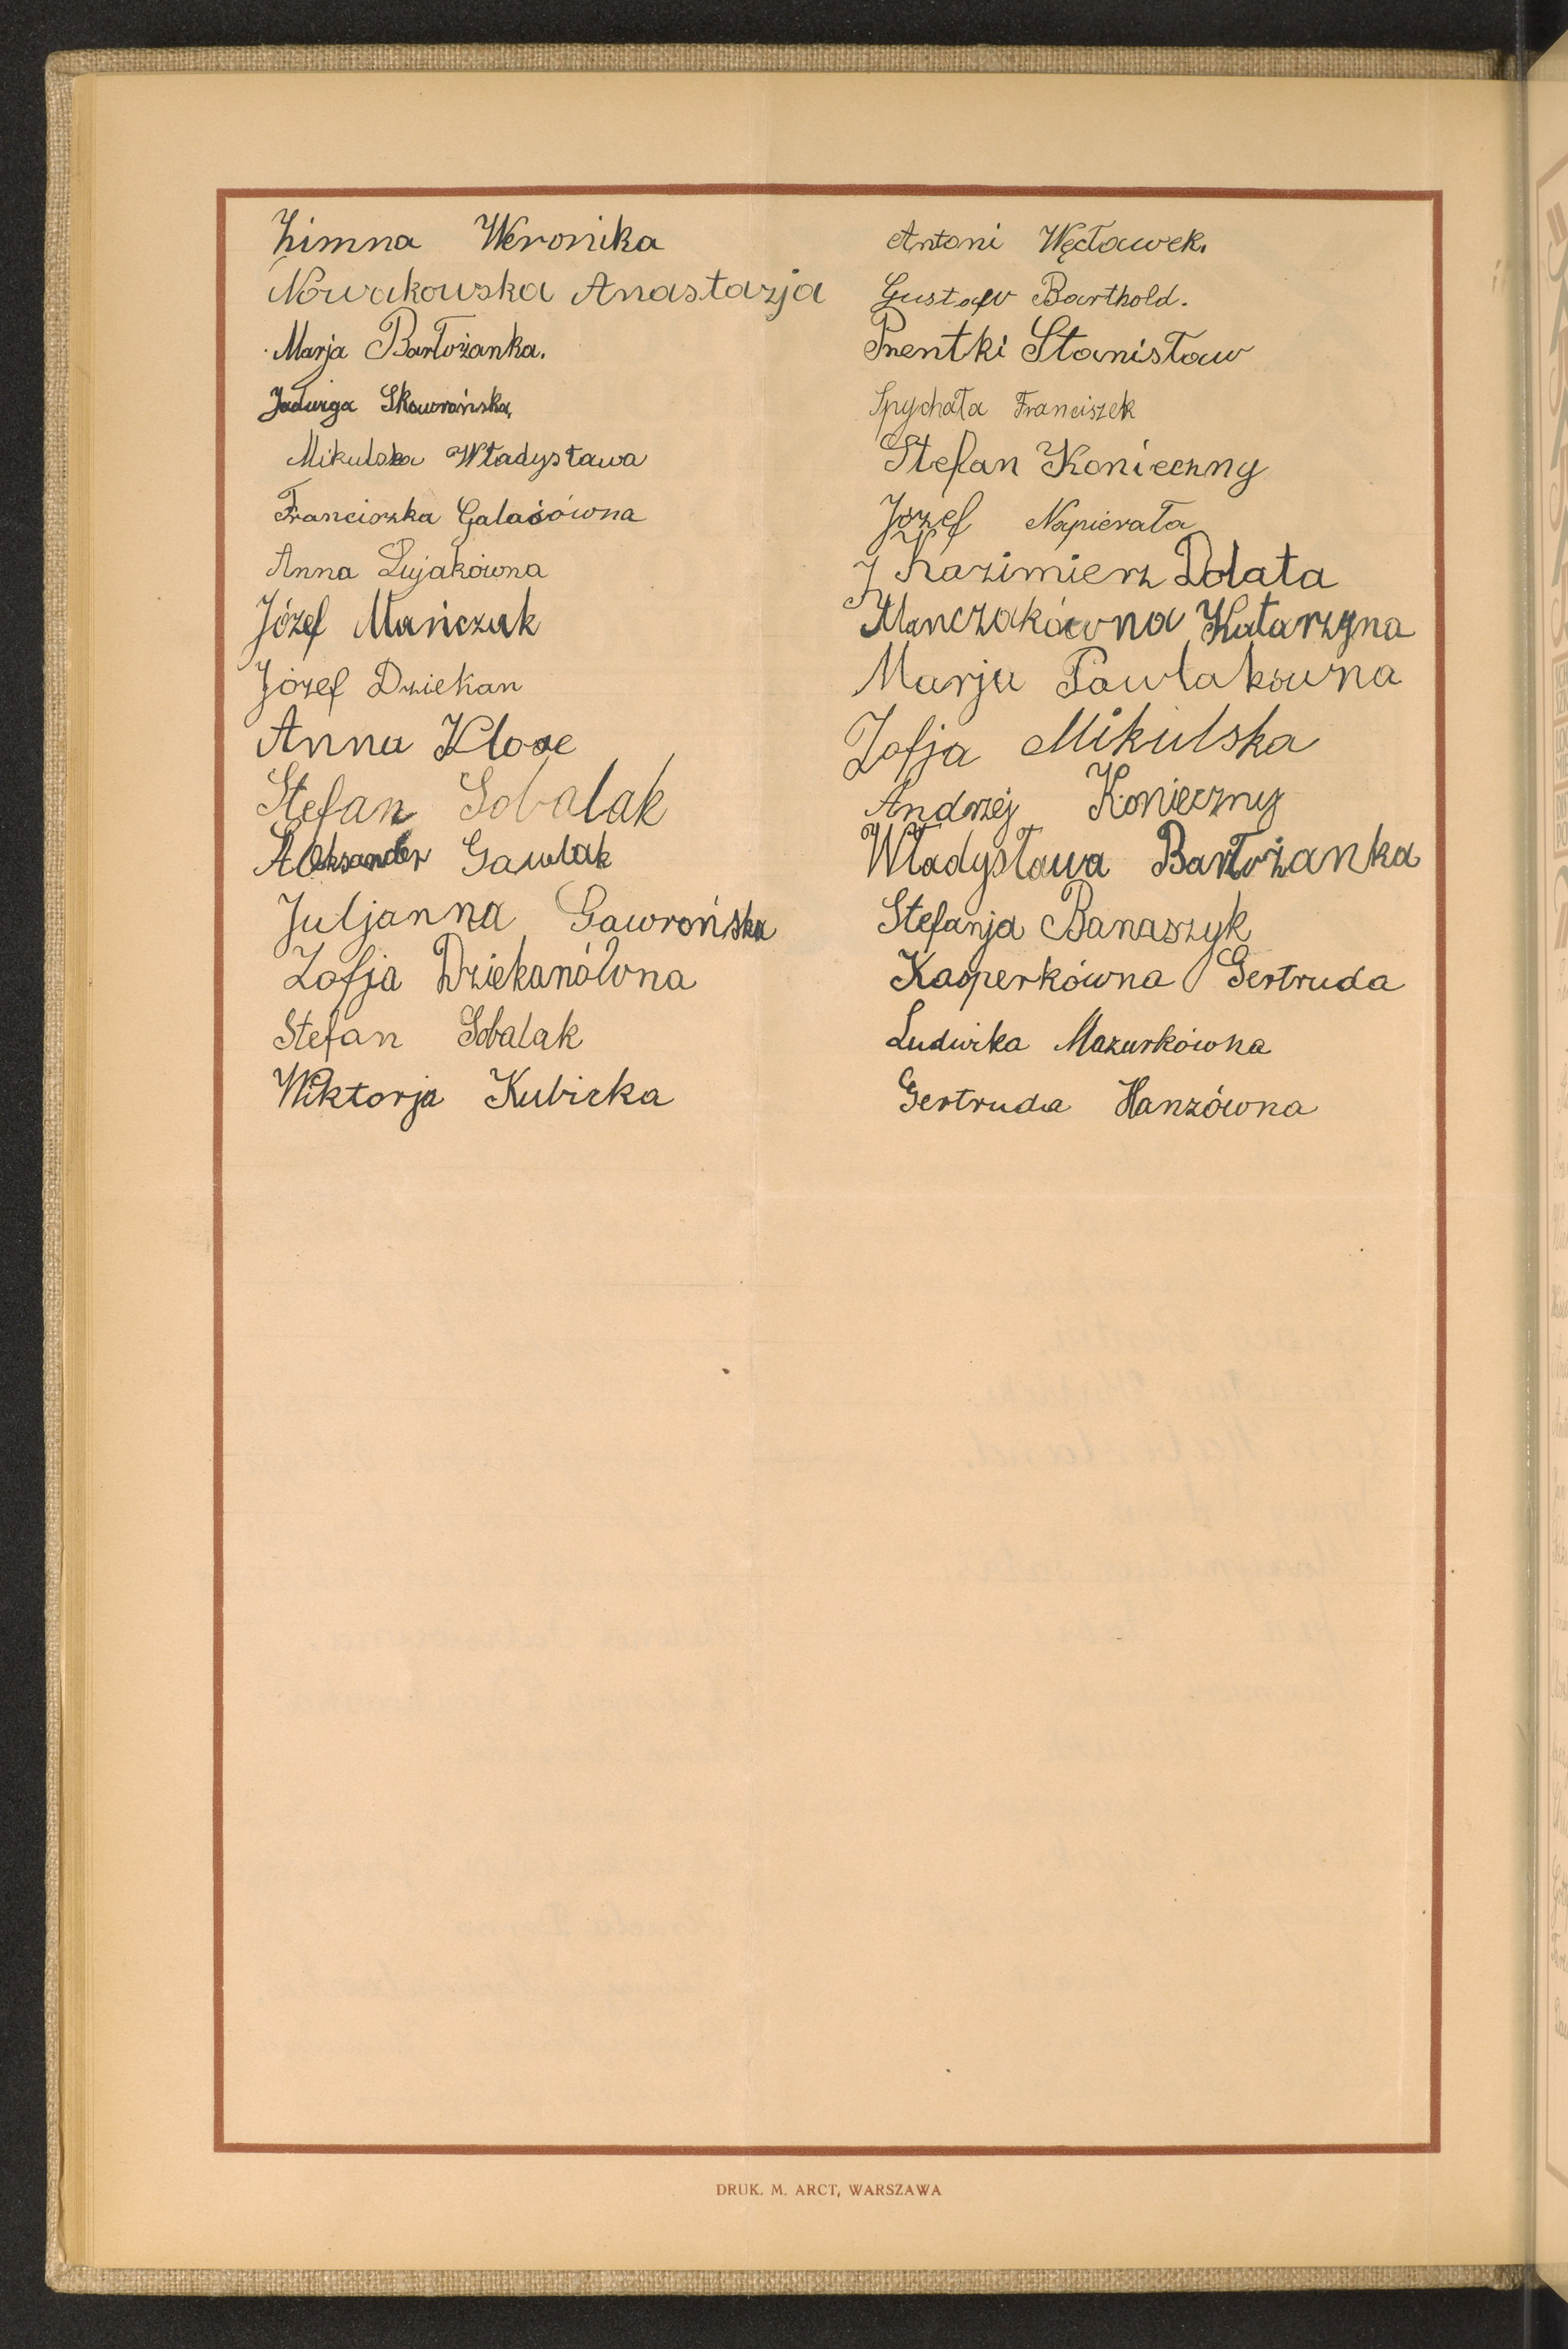 Zimna Weronika
Nowakowska Anastazja
Marja Bartożanka.
Jadwiga Skowrońska,
Mikulska Władysława
Franciszka Galasówna
Anna Lujakówna
Józef Mańczak
Józef Dziekan
Anna Klose
Stefan Sobalak
Aleksander Gawlak
Juljanna Gawrońska
Zofja Dziekanówna
Stefan Sobalak
Wiktorja Kubicka
Antoni Węcławek.
Gustaw Barthold.
Prentki Stanisław
Spychała Franciszek
Stefan Konieczny
Józef Napierała
Kazimierz Dolata
Manczakówna Katarzyna
Marja Pawlakówna
Zofja Mikulska
Andrzej Konieczny
Władysława Bartożanka
Stefanja Banaszyk
Kasperkówna Gertruda
Ludwika Mazurkówna
Gertruda Hanzówna
DRUK. M. ARCT, WARSZAWA